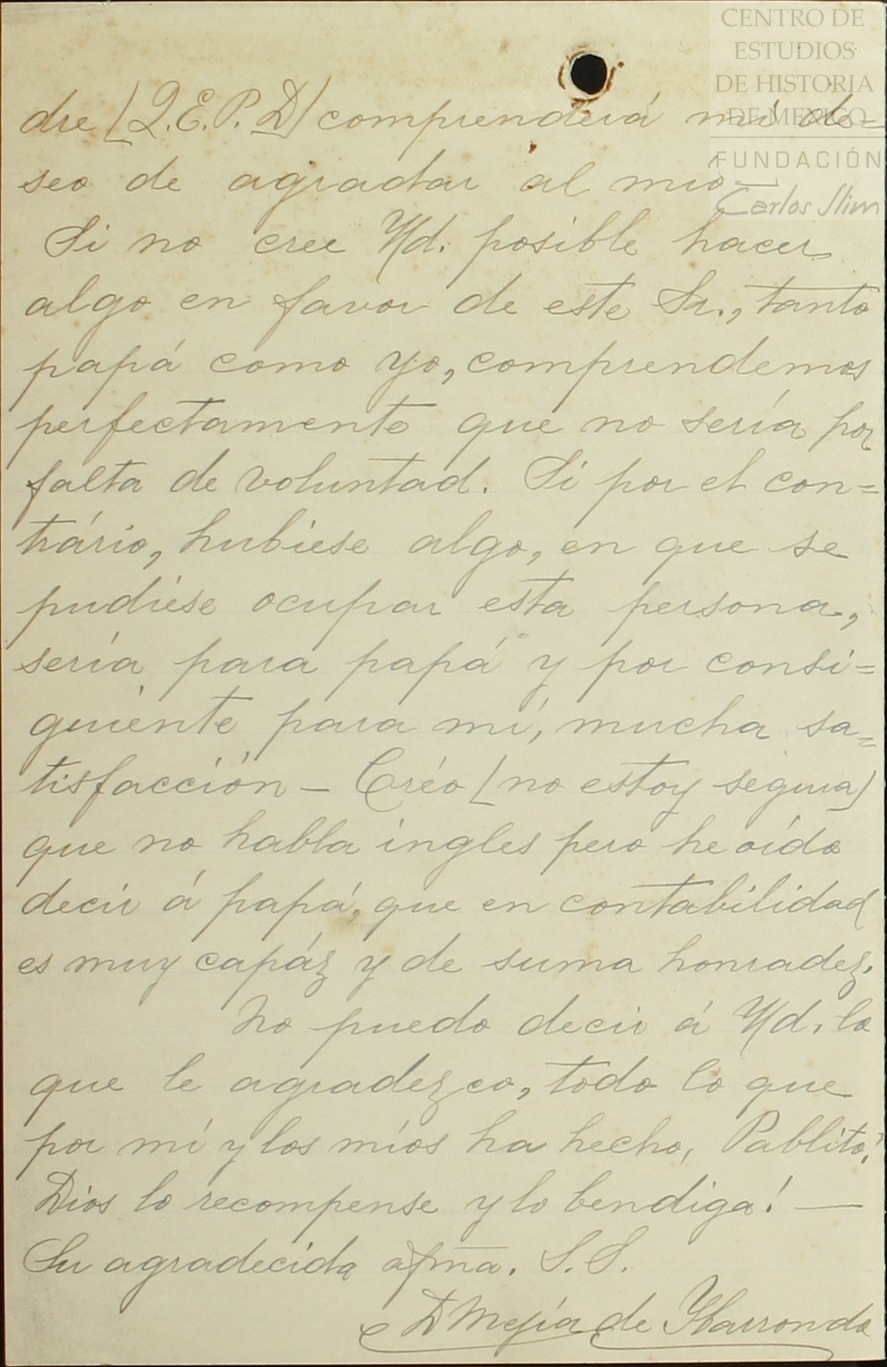 CENTRO DE
ESTUDIOS
DE HISTORIA
DE MEXICO
FUNDACIÓN
Carlos Slim
dre (Q.E.P.D) comprenderá mi de=
seo de agradar al mio—
Si no cree Ud. posible hacer
algo en favor de este Sr., tanto
papá como yo, comprendemos
perfectamente que no sería por
falta de voluntad. Si por el con=
trário, hubiese algo, en que se
pudiese ocupar esta persona,
sería para papá y por consi=
guiente para mí, mucha sa=
tisfacción – Créo (no estoy segura)
que no habla ingles pero he oído
decir á papá, que en contabilidad
es muy capáz y de suma honradez.
No puedo decir á Ud. lo
que le agradezco, todo lo que
por mí y los míos ha hecho, Pablito!
Dios lo recompense y lo bendiga! —
Su agradecida afma. S. S.
D Mejía de Ybarrondo